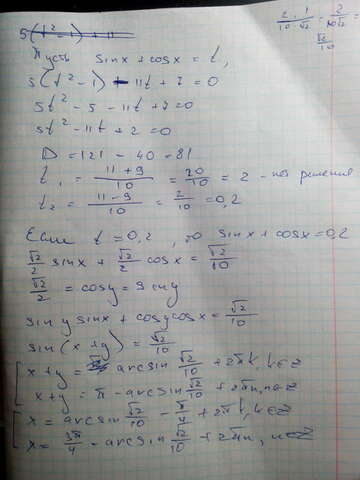 5(t² - 1) + 11
Пусть sinx + cosx = t,
5(t² - 1) - 11t + 7 = 0
5t² - 5 - 11t + 7 = 0
5t² - 11t + 2 = 0
D = 121 - 40 = 81
t₁ = (11 + 9)/10 = 20/10 = 2 - нет решения
t₂ = (11 - 9)/10 = 2/10 = 0,2
Если t = 0,2, то sinx + cosx = 0,2
√2/2 sinx + √2/2 cosx = √2/10
√2/2 = cosy = siny
siny sinx + cosy cosx = √2/10
sin(x + y) = √2/10
x + y = arcsin √2/10 + 2πk, k∈Z
x + y = π - arcsin √2/10 + 2πn, n∈Z
x = arcsin √2/10 - π/4 + 2πk, k∈Z
x = 3π/4 - arcsin √2/10 + 2πn, n∈Z